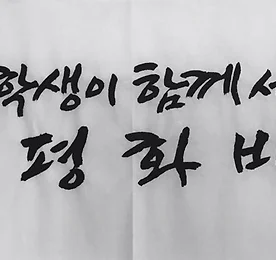 학생이 함께 서
평화비